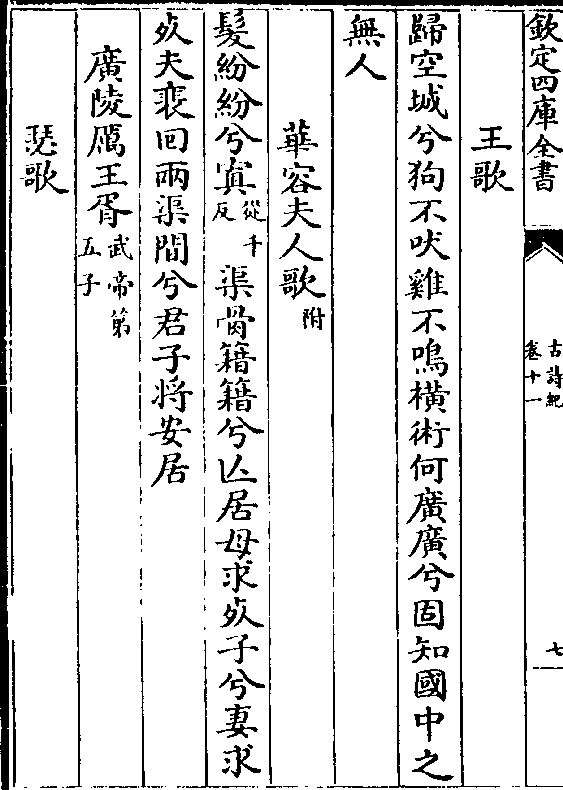 欽定四庫全書
古詩紀
卷十一
七
王歌
歸空城兮狗不吠雞不鳴橫術何廣廣兮固知國中之
無人
華容夫人歌附
髮紛紛兮寘從千反渠骨籍籍兮亾居母求死子兮妻求
死夫裵回兩渠間兮君子將安居
廣陵厲王胥武帝第五子
瑟歌